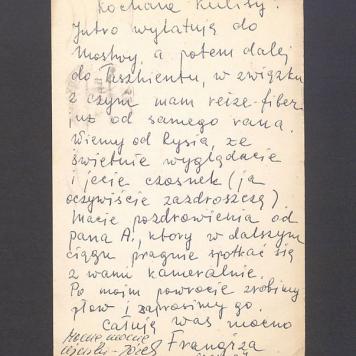 Kochane Kulisy!
Jutro wylatuję do
Moskwy, a potem dalej
do Taszkientu, w związku
z czym mam reize-fiber
już od samego rana.
Wiemy od Rysia, że
świetnie wyglądacie
i jecie czosnek (ja
oczywiście zazdroszczę).
Macie pozdrowienia od
pana A., który w dalszym
ciągu pragnie spotkać się
z wami kameralnie.
Po moim powrocie zrobimy
płow i zaprosimy go.
Całuję was mocno